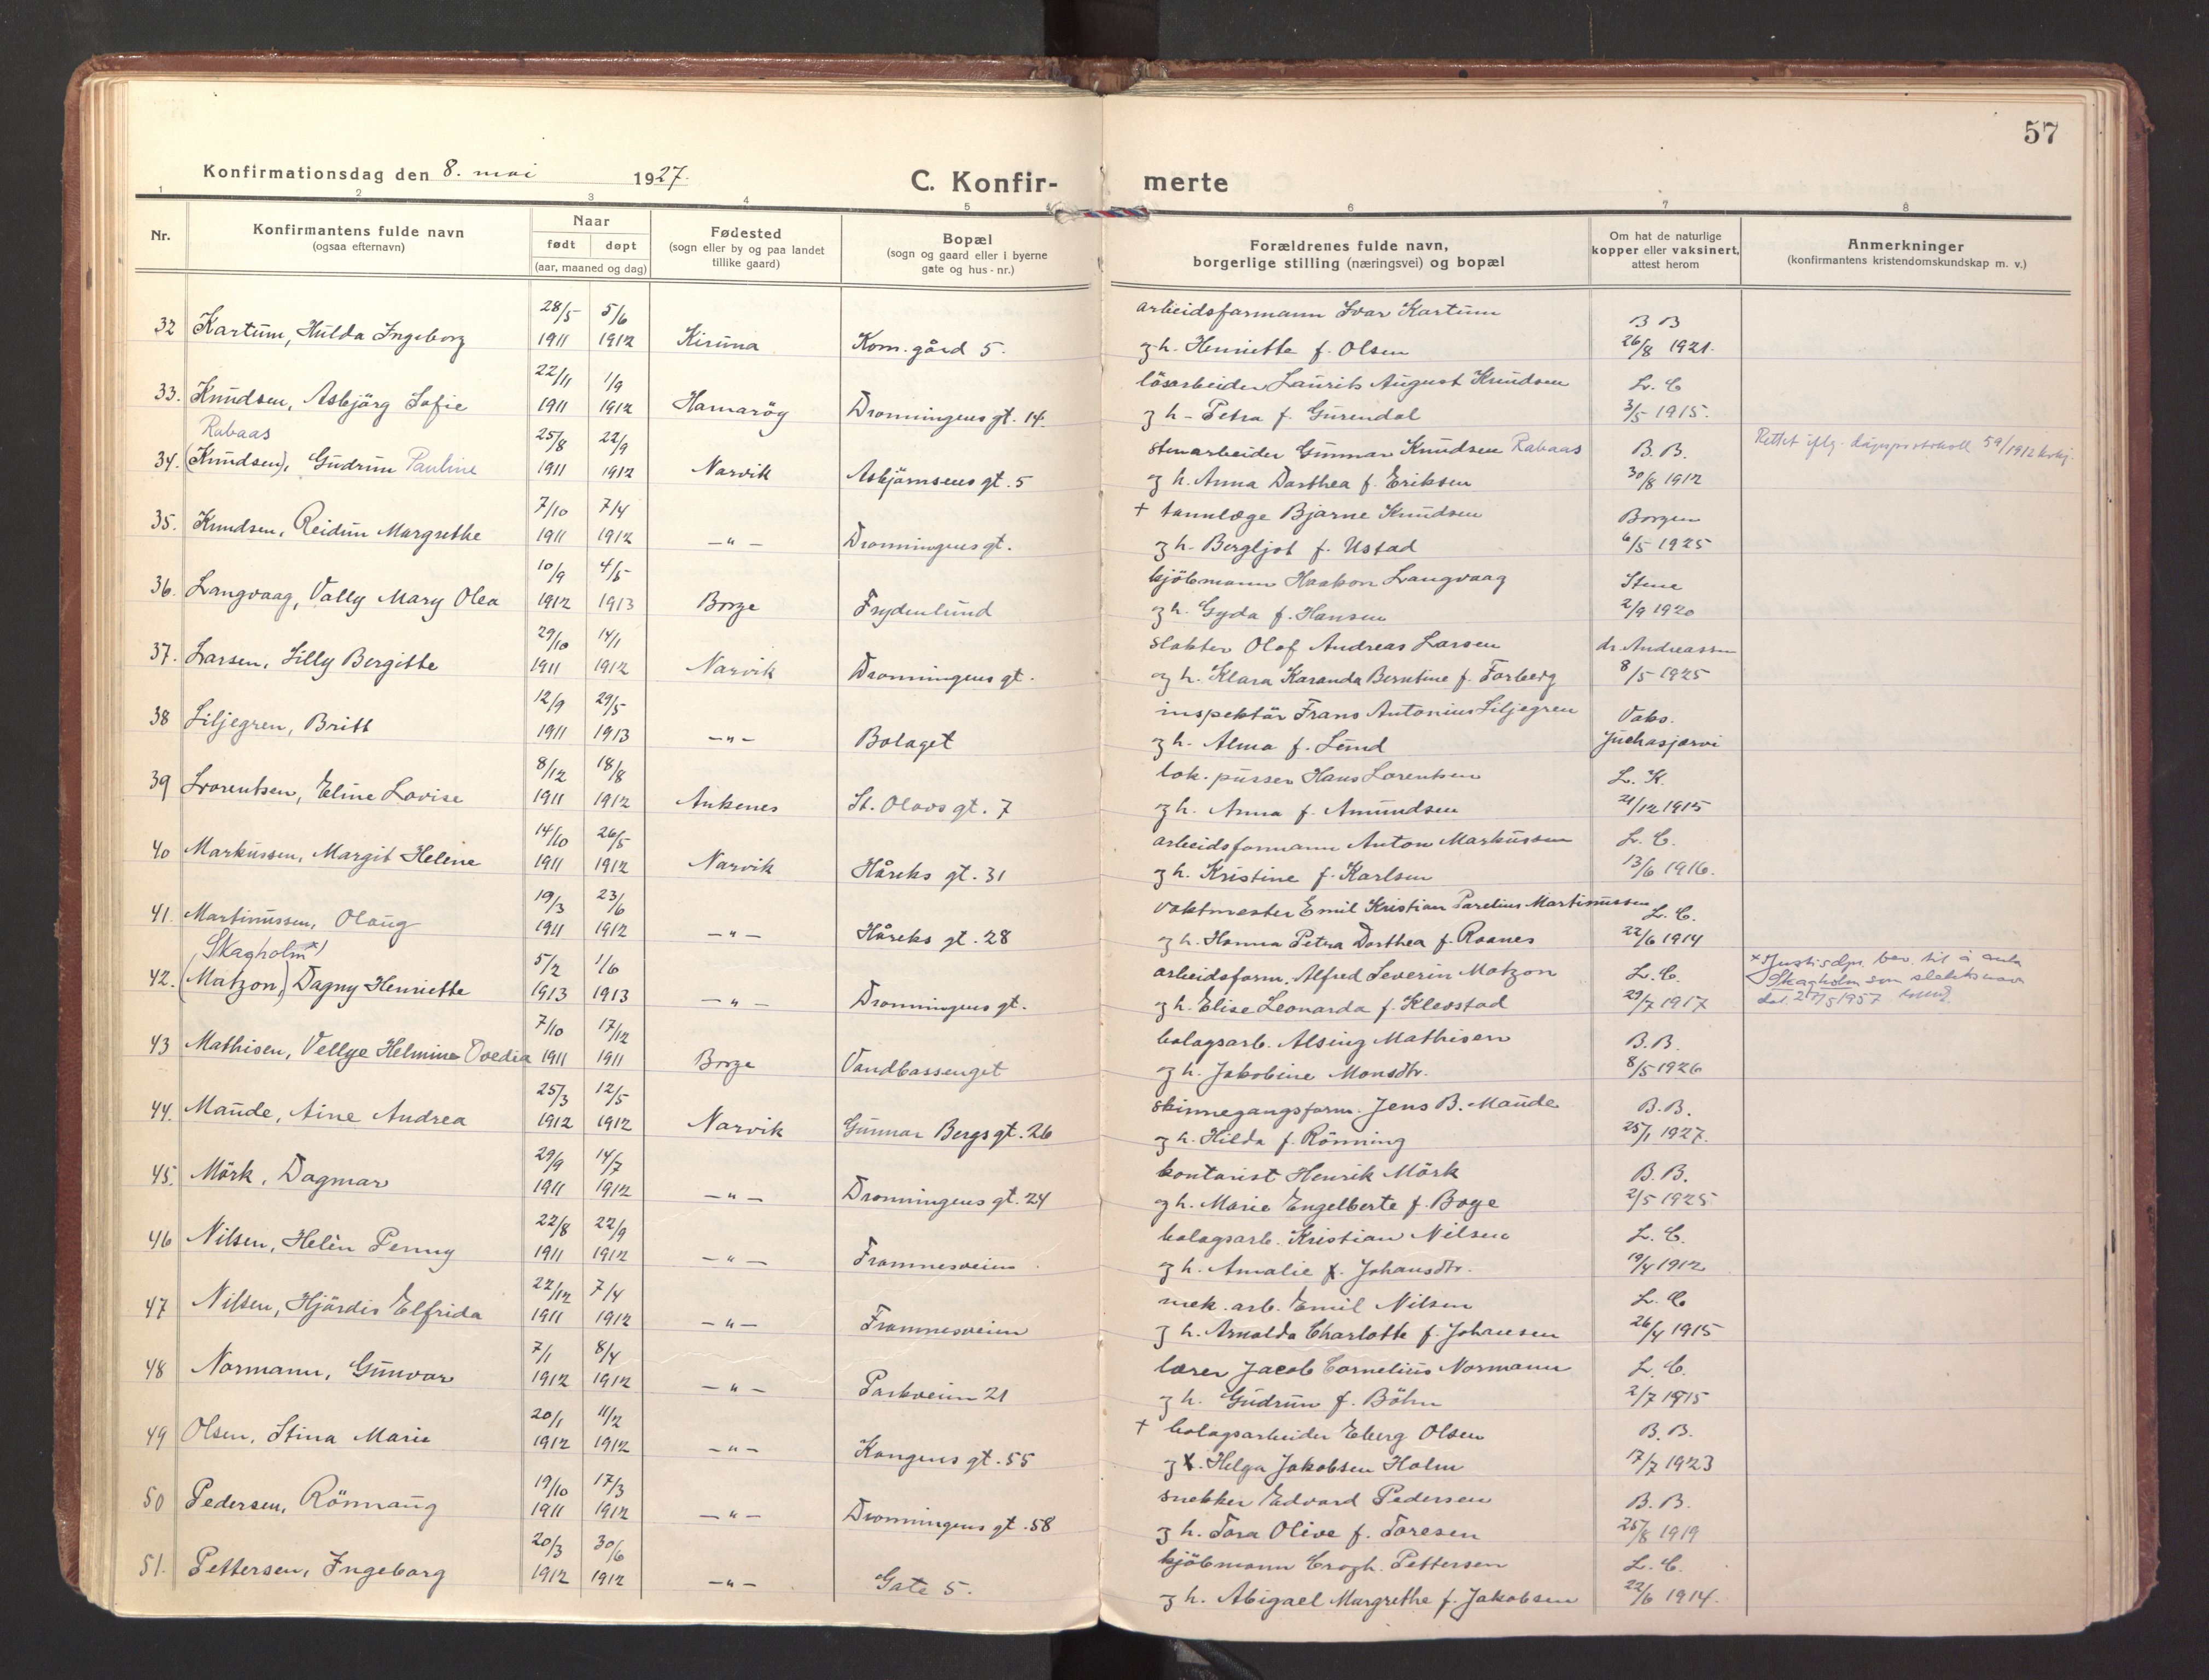 57
Konfirmationsdag den 8. mai 1927.
C. Konfir- merte
1 2 3 4 5 6 7 8
Nr.
Konfirmantens fulde navn
(ogsaa efternavn)
Naar
født døpt
(aar, maaned og dag)
Fødested
(sogn eller by og paa landet
tillike gaard)
Bopæl
(sogn og gaard eller i byerne
gate og hus-nr.)
Forældrenes fulde navn,
borgerlige stilling (næringsvei) og bopæl
Om hat de naturlige
kopper eller vaksinert,
attest herom
Anmerkninger
(konfirmantens kristendomskundskap m. v.)
28/5 5/6 arbeidsformann Ivar Kartum B B
32 Kartum, Hulda Ingeborg 1911 1912 Kiruna Kom. gård 5. og h. Henriette f. Olsen 26/8 1921.
22/11 1/9 lösarbeider Laurits August Knudsen L. C
33. Knudsen, Asbjörg Sofie 1911 1912 Hamaröy Dronningens gt. 14. og h - Petra f. Gurendal 3/5 1915.
Rabaas 25/8 22/9 stenarbeider Gunnar Knudsen Rabaas B. B. Rettet iflg. dåpsprotokoll 59/1912
34. (Knudsen), Gudrun Pauline 1911 1912 Narvik Asbjörnsens gt. 5 og h. Anna Dorthea f. Eriksen 30/8 1912
7/10 7/4 + tannlæge Bjarne Knudsen Borgen
35. Knudsen, Reidun Margrethe 1911 1912 -"- Dronningens gt. og h. Bergljot f. Ustad 6/5 1925
10/9 4/5 kjöbmann Haakon Langvaag Stene
36. Langvaag, Vally Mary Olea 1912 1913 Borge Frydenlund og h. Gyda f. Hansen 2/9 1920
29/10 14/1 slakter Olaf Andreas Larsen dr. Andreassen
37. Larsen, Lilly Bergitte 1911 1912 Narvik Dronningens gt. og h. Klara Karanda Berntine f. Forberg 8/5 1925
12/9 29/5 inspektör Frans Antonius Liljegren Vaks.
38 Liljegren, Britt 1911 1913 -"- Bolaget og h. Alma f. Lund Juckasjärvi
8/12 18/8 lok. pusser Hans Lorentsen L. K.
39 Lorentsen, Eline Lovise 1911 1912 Ankenes St. Olavs gt. 7 og h. Anna f. Amundsen 21/12 1915
14/10 26/5 arbeidsformann Anton Markussen L. C.
40 Markussen, Margit Helene 1911 1912 Narvik Håreks gt. 31 og h. Kristine f. Karlsen 13/6 1916.
19/3 23/6 vaktmester Emil Kristian Parelius Martinussen L. C.
41. Martinussen, Olaug 1911 1912 -"- Håreks gt. 28 og h. Hanna Petra Dorthea f. Raanes 22/6 1914
Skagholm x) 5/2 1/6 arbeidsform. Alfred Severin Matzon L. C. x Justisdpt. bev. til å anta
42. (Matzon,) Dagny Henriette 1913 1913 -"- Dronningens gt. og h. Elise Leonarda f. Klevstad 29/7 1917 Skagholm som slektsnavn
dat. 27/5 1957
7/10 17/12 bolagsarb. Alsing Mathisen B. B.
43 Mathisen, Vellye Helmine Ovedia 1911 1911 Borge Vandbassenget og h. Jakobine Monsdtr. 8/5 1926
25/3 12/5 skinnegangsform. Jens B. Maude B. B.
44. Maude, Aine Andrea 1912 1912 Narvik Gunnar Bergs gt. 26 og h. Hilda f. Rönning 25/1 1927.
29/9 14/7 kontorist Henrik Mörk B. B.
45. Mörk, Dagmar 1911 1912 -"- Dronningens gt. 24 og h. Marie Engelberte f. Boge 2/5 1925
22/8 22/9 bolagsarb. Kristian Nilsen L. C.
46 Nilsen, Helèn Penny 1911 1912 -"- Framnesveien og h. Amalie f. Johansdtr. 19/4 1912
22/12 7/4 mek. arb. Emil Nilsen L. C
47 Nilsen, Hjördis Elfrida 1911 1912 -"- Framnesveien og h. Arnolda Charlotte f. Johansen 26/4 1915
7/1 8/4 lærer Jacob Cornelius Normann L. C.
48 Normann, Gunvor 1912 1912 -"- Parkveien 21 og h. Gudrun f. Böhn 2/7 1915
20/1 11/2 + bolagsarbeider Eberg Olsen B. B.
49 Olsen, Stina Marie 1912 1912 -"- Kongens gt. 55 og Helga Jakobsen Holm 17/7 1923
19/10 17/3 snekker Edvard Pedersen B. B.
50 Pedersen, Rönnaug 1911 1912 -"- Dronningens gt. 58 og h. Tora Olive f. Toresen 25/8 1919
20/3 30/6 kjöbmann Crogh. Pettersen L. C.
51. Pettersen, Ingeborg 1912 1912 -"- Gate 5. og h. Abigael Margrethe f. Jakobsen 22/6 1914.